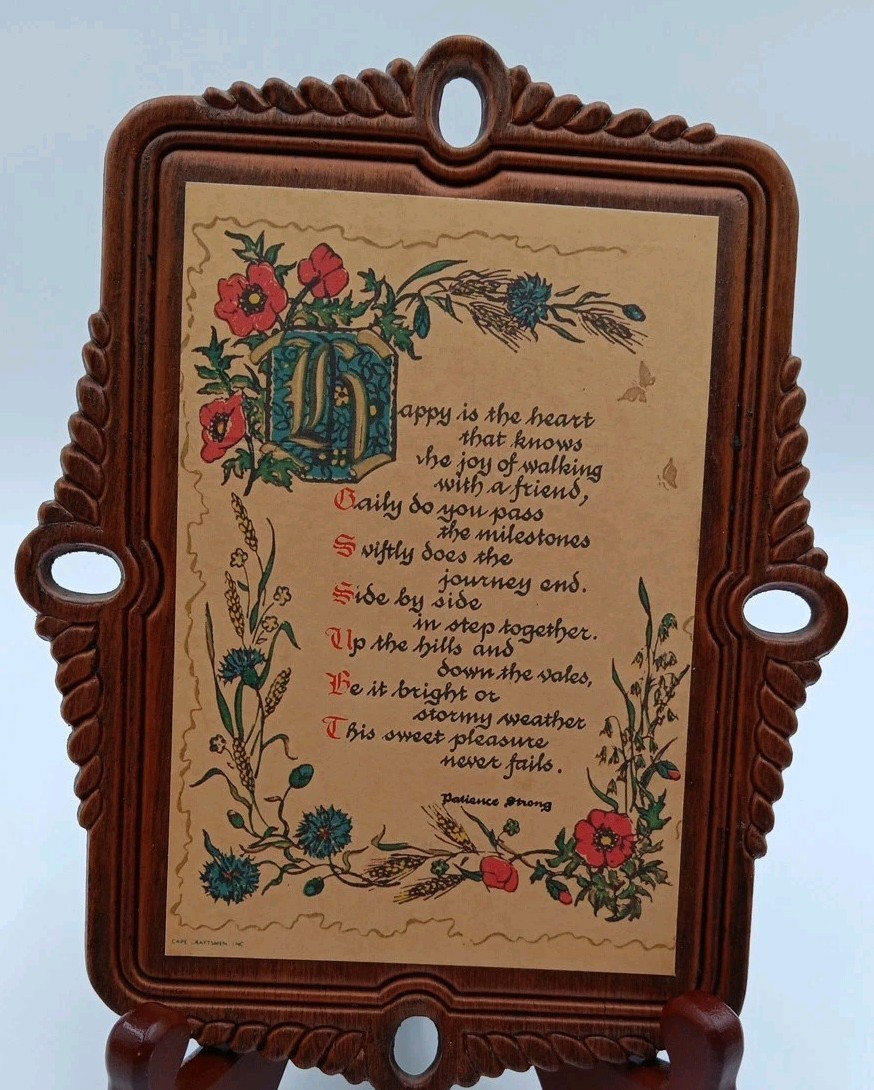 Happy is the heart
that knows
the joy of walking
with a friend,
Gaily do you pass
the milestones
Swiftly does the
journey end.
Side by side
in step together.
Up the hills and
down the vales,
Be it bright or
stormy weather
This sweet pleasure
never fails.
Patience Strong
CAPE CRAFTSMEN INC